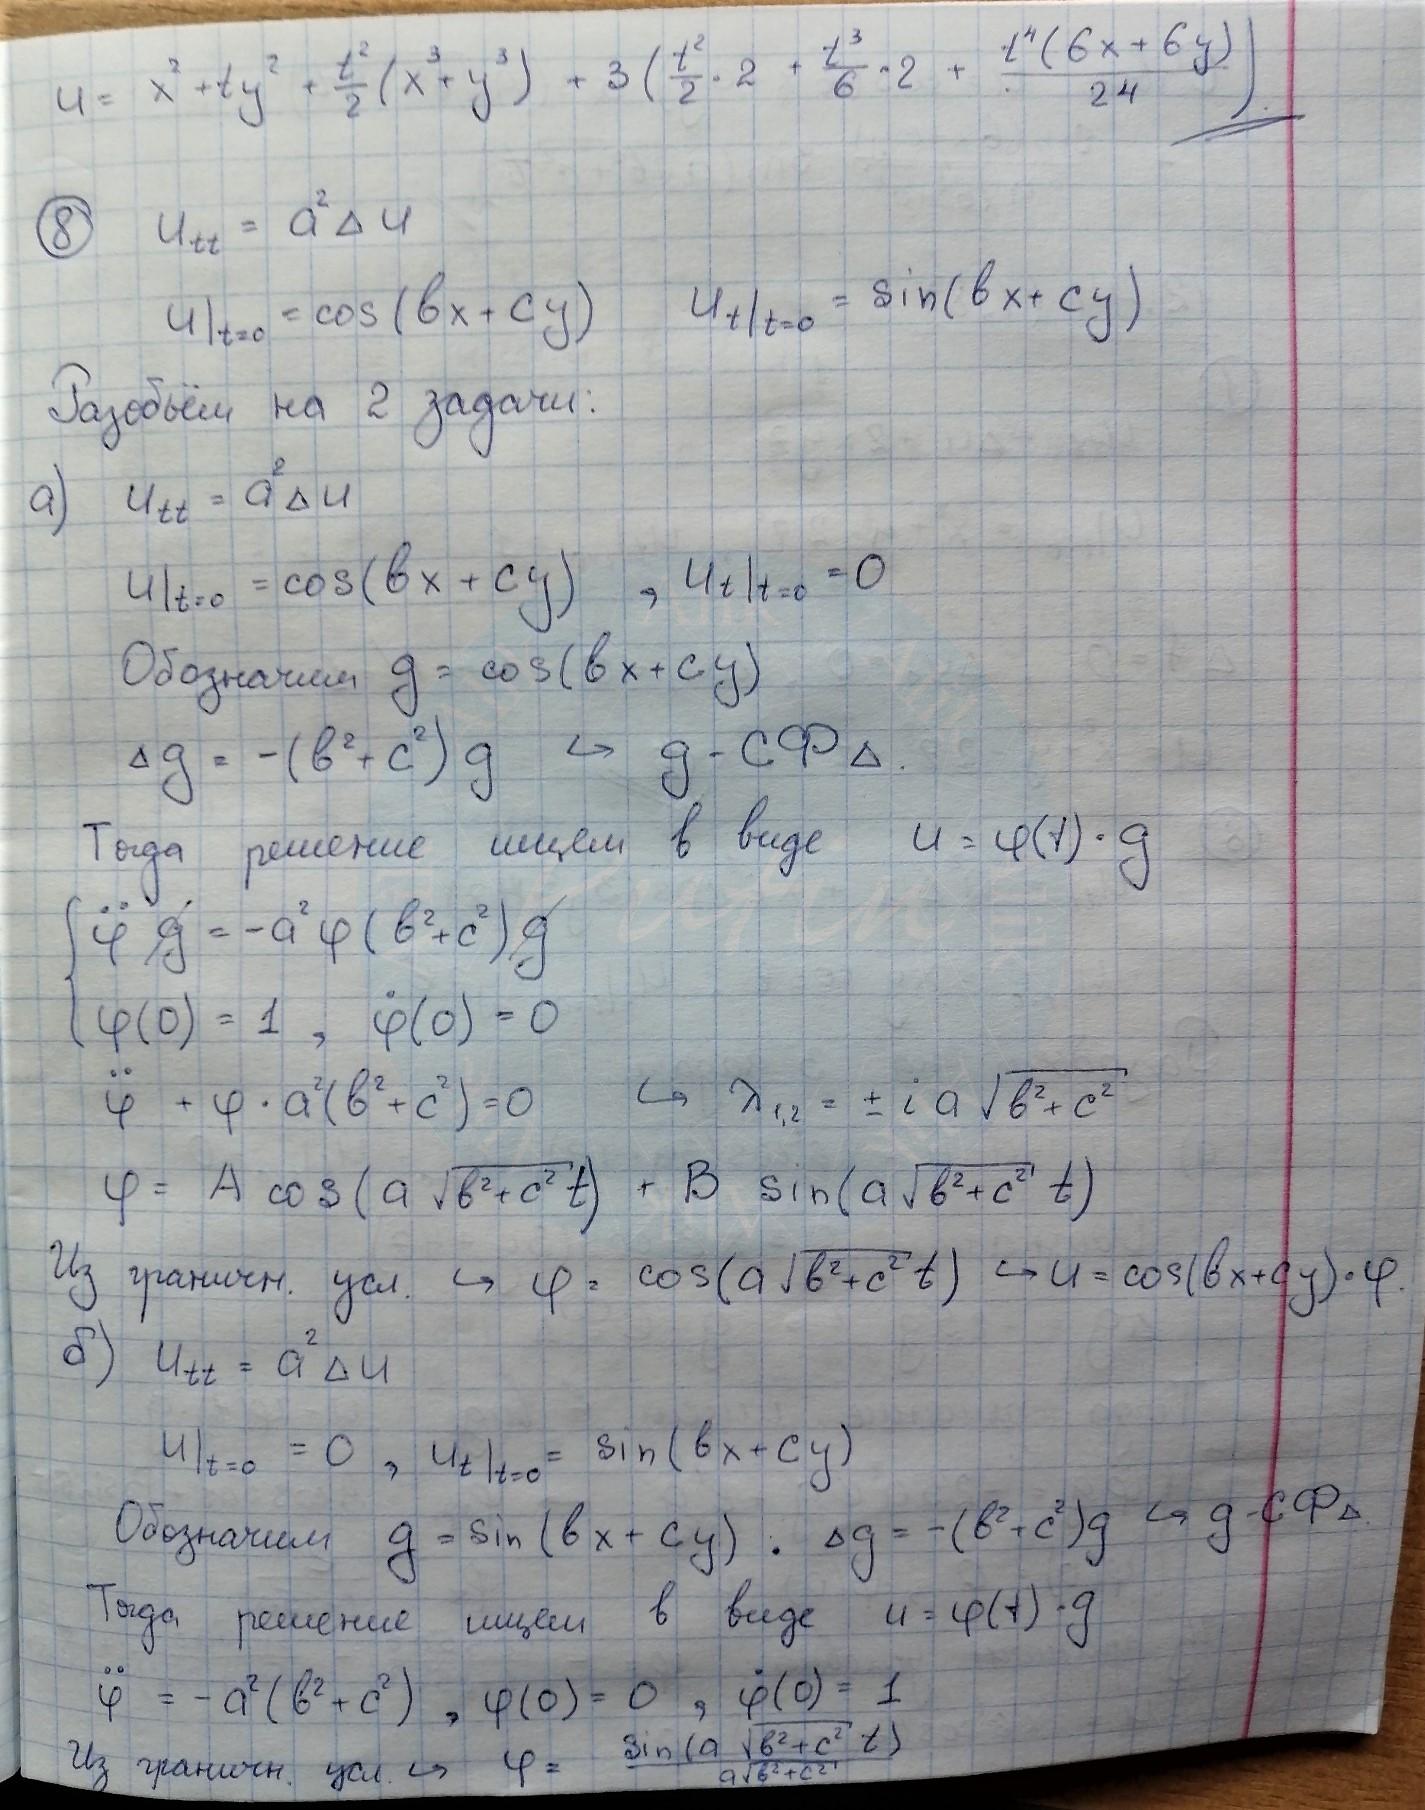 u = x² + ty² + t²/2 (x³ + y³) + 3(t²/2 · 2 + t³/6 · 2 + t⁴(6x + 6y)/24).
⑧ u_tt = a²Δu
u|_t=0 = cos(bx + cy) u_t|_t=0 = sin(bx + cy)
Разобьём на 2 задачи:
а) u_tt = a²Δu
u|_t=0 = cos(bx + cy) , u_t|_t=0 = 0
Обозначим g = cos(bx + cy)
Δg = -(b² + c²)g ↪ g - СФ Δ.
Тогда решение ищем в виде u = φ(t) · g
{ φ̈ g = -a²φ(b² + c²)g
φ(0) = 1 , φ̇(0) = 0
φ̈ + φ · a²(b² + c²) = 0 ↪ λ₁,₂ = ± i a √(b² + c²)
φ = A cos(a √(b² + c²) t) + B sin(a √(b² + c²) t)
Из граничн. усл. ↪ φ = cos(a √(b² + c²) t) ↪ u = cos(bx + cy) · φ.
б) u_tt = a²Δu
u|_t=0 = 0 , u_t|_t=0 = sin(bx + cy)
Обозначим g = sin(bx + cy) . Δg = -(b² + c²)g ↪ g - СФ Δ.
Тогда решение ищем в виде u = φ(t) · g
φ̈ = -a²(b² + c²) , φ(0) = 0 , φ̇(0) = 1
Из граничн. усл. ↪ φ = sin(a √(b² + c²) t) / a√(b² + c²)